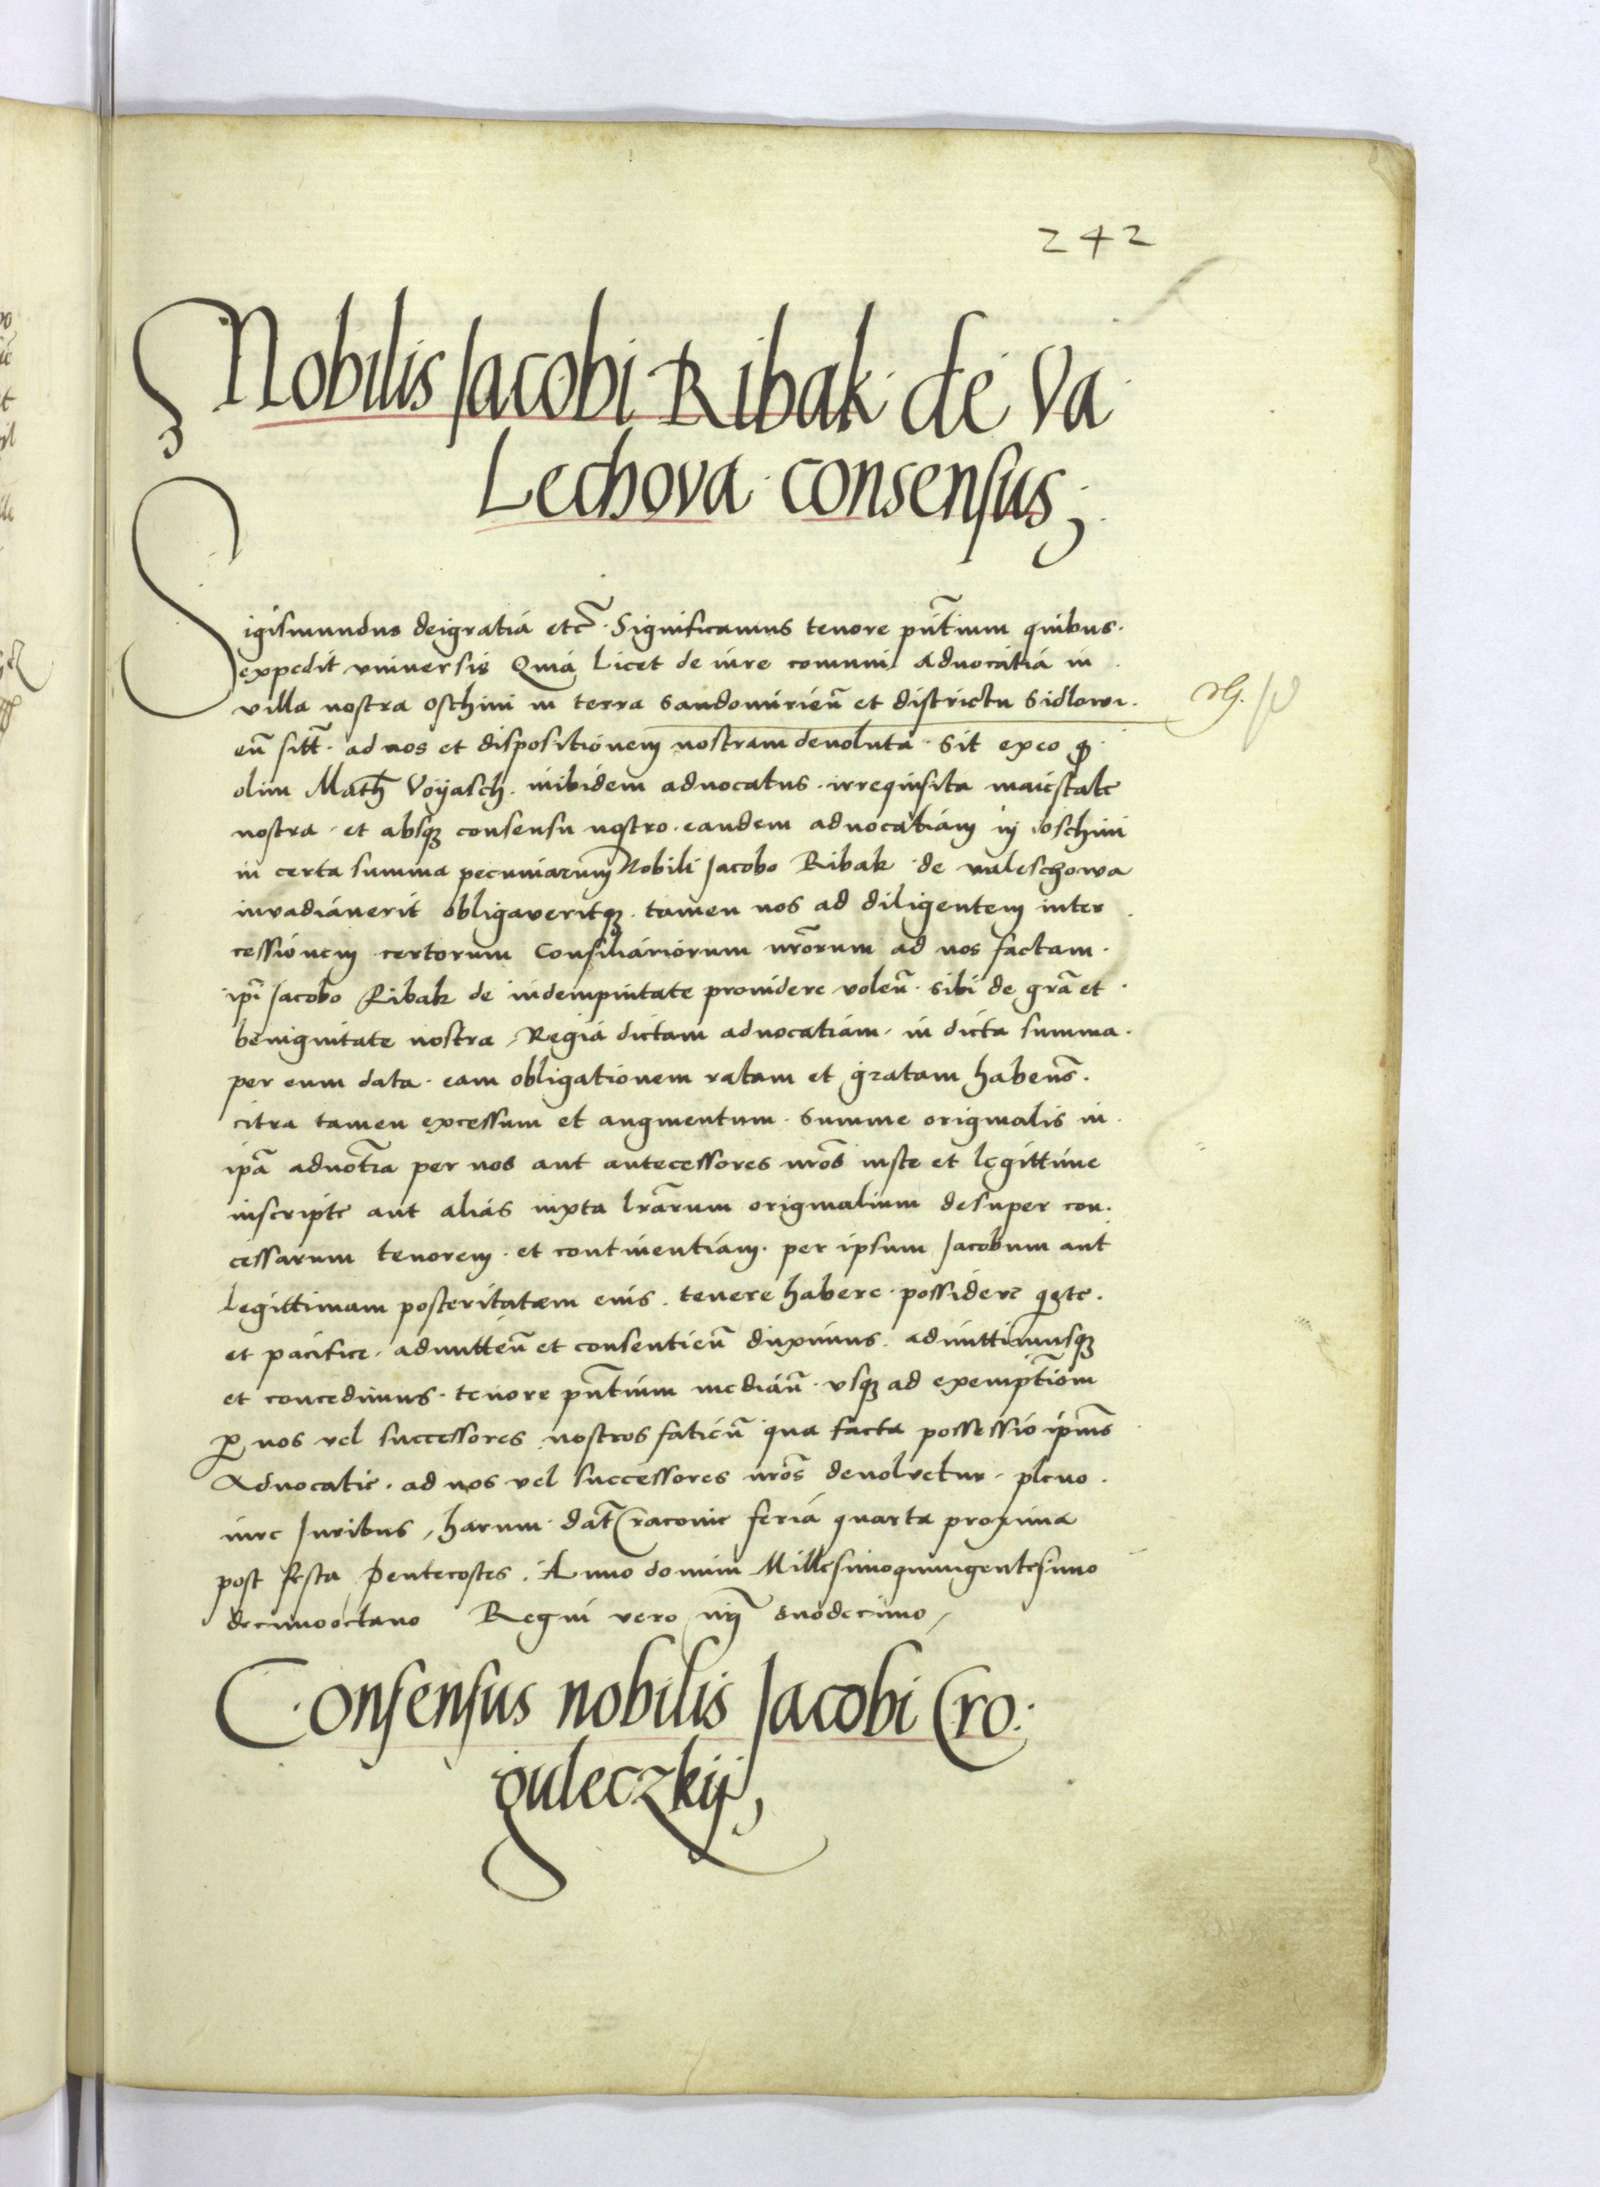 242
Nobilis Jacobi Ribak de Va
Lechova consensus;
Sigismundus deigratia etc̃. Significamus tenore pñtium quibus.
expedit vniuersis Quia Licet de iure comuni Aduocatia in
villa nostra oschini in terra sandomirieñ et districtu sidlowi.
eñ sitt̃. ad nos et dispositionem nostram deuoluta. sit exeo ꝙ
olim Math̃ Voyasch. inibidem aduocatus. irrequisita maiestate
nostra. et absqꝫ consensu nostro. eandem aduocatiam in oschini
in certa summa pecuniarum Nobili Jacobo Ribak de valeschowa
inuadiauerit obligaueritqꝫ. tamen nos ad diligentem inter
cessionem certorum Consiliariorum nrõrum ad nos factam.
ip̃i Jacobo Ribak de indempnitate prouidere voleñ. sibi de grã et
benignitate nostra Regia dictam aduocatiam. in dicta summa.
per eum data. eam obligationem ratam et gratam habeñs.
citra tamen excessum et augmentum. summe originalis in
ip̃a aduoc̃tia per nos aut antecessores nrõs iuste et legittime
inscripte aut alias iuxta lrãrum originalium desuper con.
cessarum tenorem. et continentiam. per ipsum Jacobum aut
Legittimam posteritatem eius. tenere habere. possidere q̃ete.
et pacifice. admitteñ et consentieñ duximus. admittimusqꝫ
et concedimus. tenore pñtium mediañ. vsqꝫ ad exemptiõm
ꝑ nos vel successores nostros fatieñ qua facta possessio ip̃ius
Aduocatie. ad nos vel successores nrõs deuoluetur. pleno.
iure Juribus, harum dat̃ Cracouie feria quarta proxima
post festa Pentecostes. Anno domini Millesimoquingentesimo
decimooctauo Regni vero nr̃i duodecimo,
Consensus nobilis Jacobi Cro.
guleczkij,